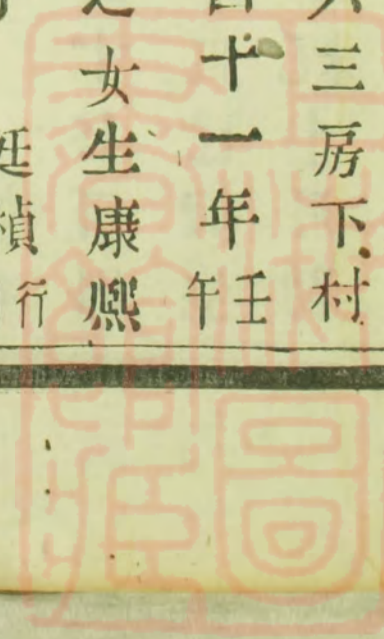 三房下村
十一年壬午
女生康熙
廷楨行
圖